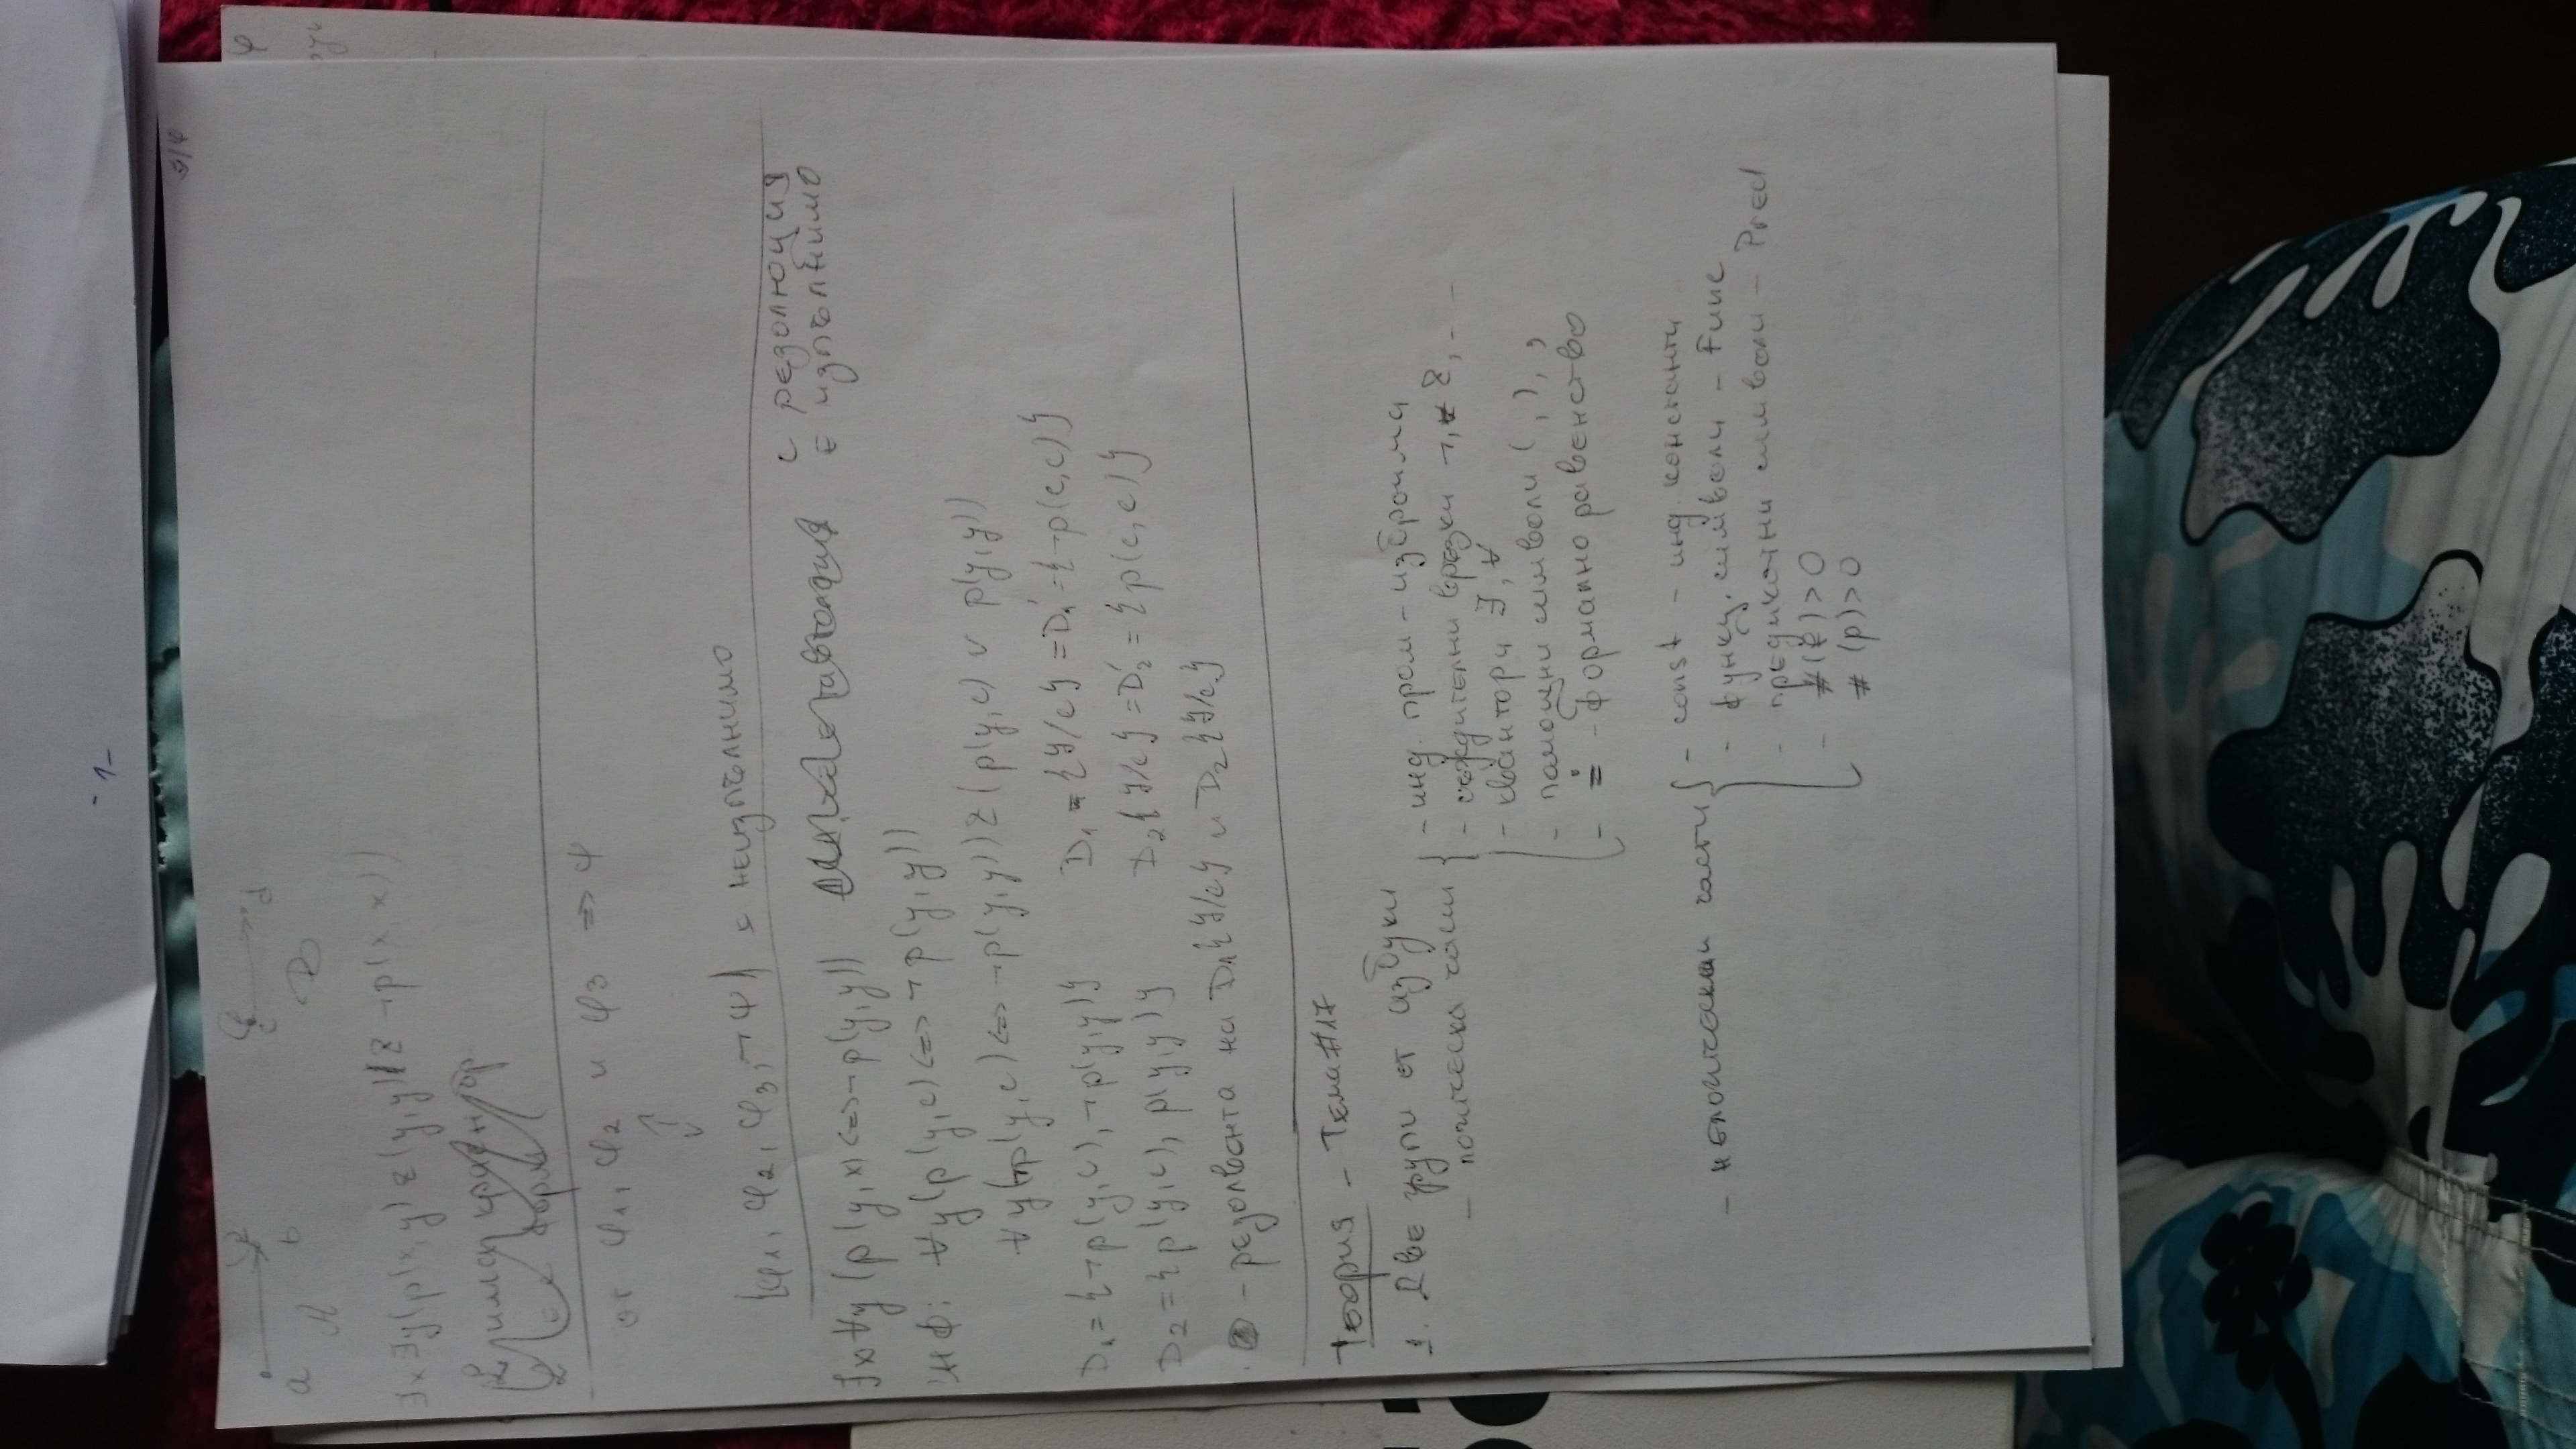 9/4
a b c d
A B
∃x∃y(p(x,y) & (y,y) & ¬p(x,x))
форма
от φ1, φ2 и φ3 ⇒ ψ
⇕
{φ1, φ2, φ3, ¬ψ} е неизпълнимо
с резолюция
∃x∀y(p(y,x)<=>¬p(y,y)) е изпълнимо
НФ: ∀y(p(y,c)<=>¬p(y,y))
∀y(¬p(y,c)<=>¬p(y,y)) & (p(y,c) ∨ p(y,y))
D1 = {¬p(y,c), ¬p(y,y)} D1 = {y/c} = D1' = {¬p(c,c)}
D2 = {p(y,c), p(y,y)} D2{y/c} = D2' = {p(c,c)}
- резолвента на D1{y/c} и D2{y/c}
Теория - Тема #17
1. Две групи от азбуки
- логическа част { - инд. пром - изброима
- съждителни връзки ¬, &, ...
- квантори ∃, ∀
- помощни символи ( , ) , ,
- ≐ - формално равенство
- нелогически части { - const - инд. константи
- функц. символи - Func
- предикатни символи - Pred
- #(f)>0
#(p)>0